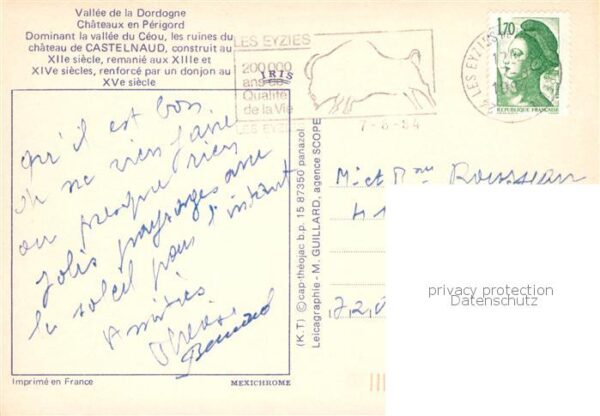 Vallée de la Dordogne
Châteaux en Périgord
Dominant la vallée du Céou, les ruines du
château de CASTELNAUD, construit au
XIIe siècle, remanié aux XIIIe et
XIVe siècles, renforcé par un donjon au
XVe siècle
IRIS
LES EYZIES
200000
ans de
Qualité
de la Vie
LES EYZI
7-8-84
LES EYZIES
1,70
REPUBLIQUE FRANÇAISE
qu'il est bon
de ne rien faire
ou presque rien
Jolis paysages avec
le soleil pour l'instant
Amitiés
Thérèse
Bernard
(K.T) © cap-théojac b.p. 15 87350 panazol
Leicagraphie - M. GUILLARD, agence SCOPE
M. et Mme Rousseau
41
720
privacy protection
Datenschutz
Imprimé en France
MEXICHROME